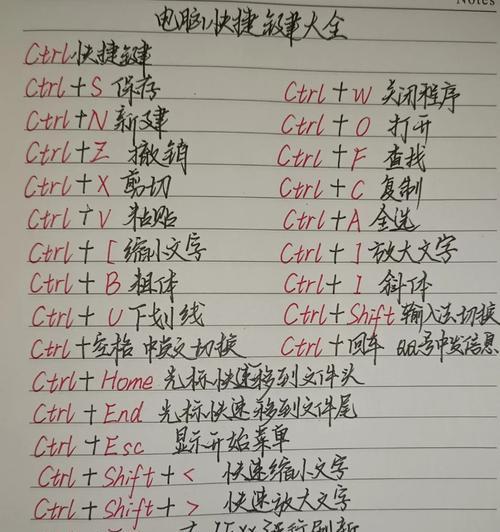 Notes
电脑快捷键大全
Ctrl快捷键
Ctrl+S 保存 Ctrl+W 关闭程序
Ctrl+N 新建 Ctrl+O 打开
Ctrl+Z 撤销 Ctrl+F 查找
Ctrl+X 剪切 Ctrl+C 复制
Ctrl+V 粘贴 Ctrl+A 全选
Ctrl+[ 缩小文字 Ctrl+] 放大文字
Ctrl+B 粗体 Ctrl+I 斜体
Ctrl+U 下划线 Ctrl+Shift 输入法切换
Ctrl+空格 中英文切换 Ctrl+回车 QQ号中发信息
Ctrl+Home 光标快速移到文件头
Ctrl+End 光标快速移到文件尾
Ctrl+Esc 显示开始菜单
Ctrl+Shift+< 快速缩小文字
Ctrl+Shift+> 快速放大文字